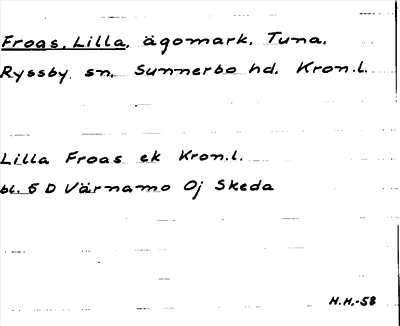 Froas, Lilla, ägomark, Tuna,
Ryssby sn, Sunnerbo hd, Kron.l.
Lilla Froas ek Kron.l.
bl. 5 D Värnamo Oj Skeda
H.H.-58